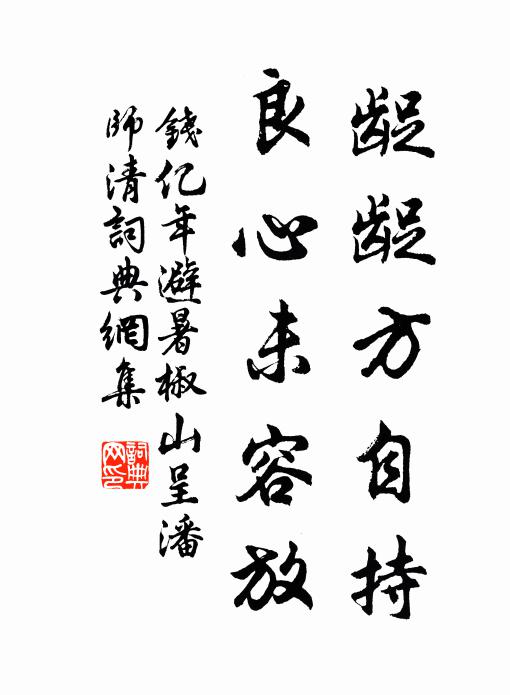 龊龊方自持
良心未容放
錢亿年避暑椒山呈潘
師清詞典網集
詞典网印